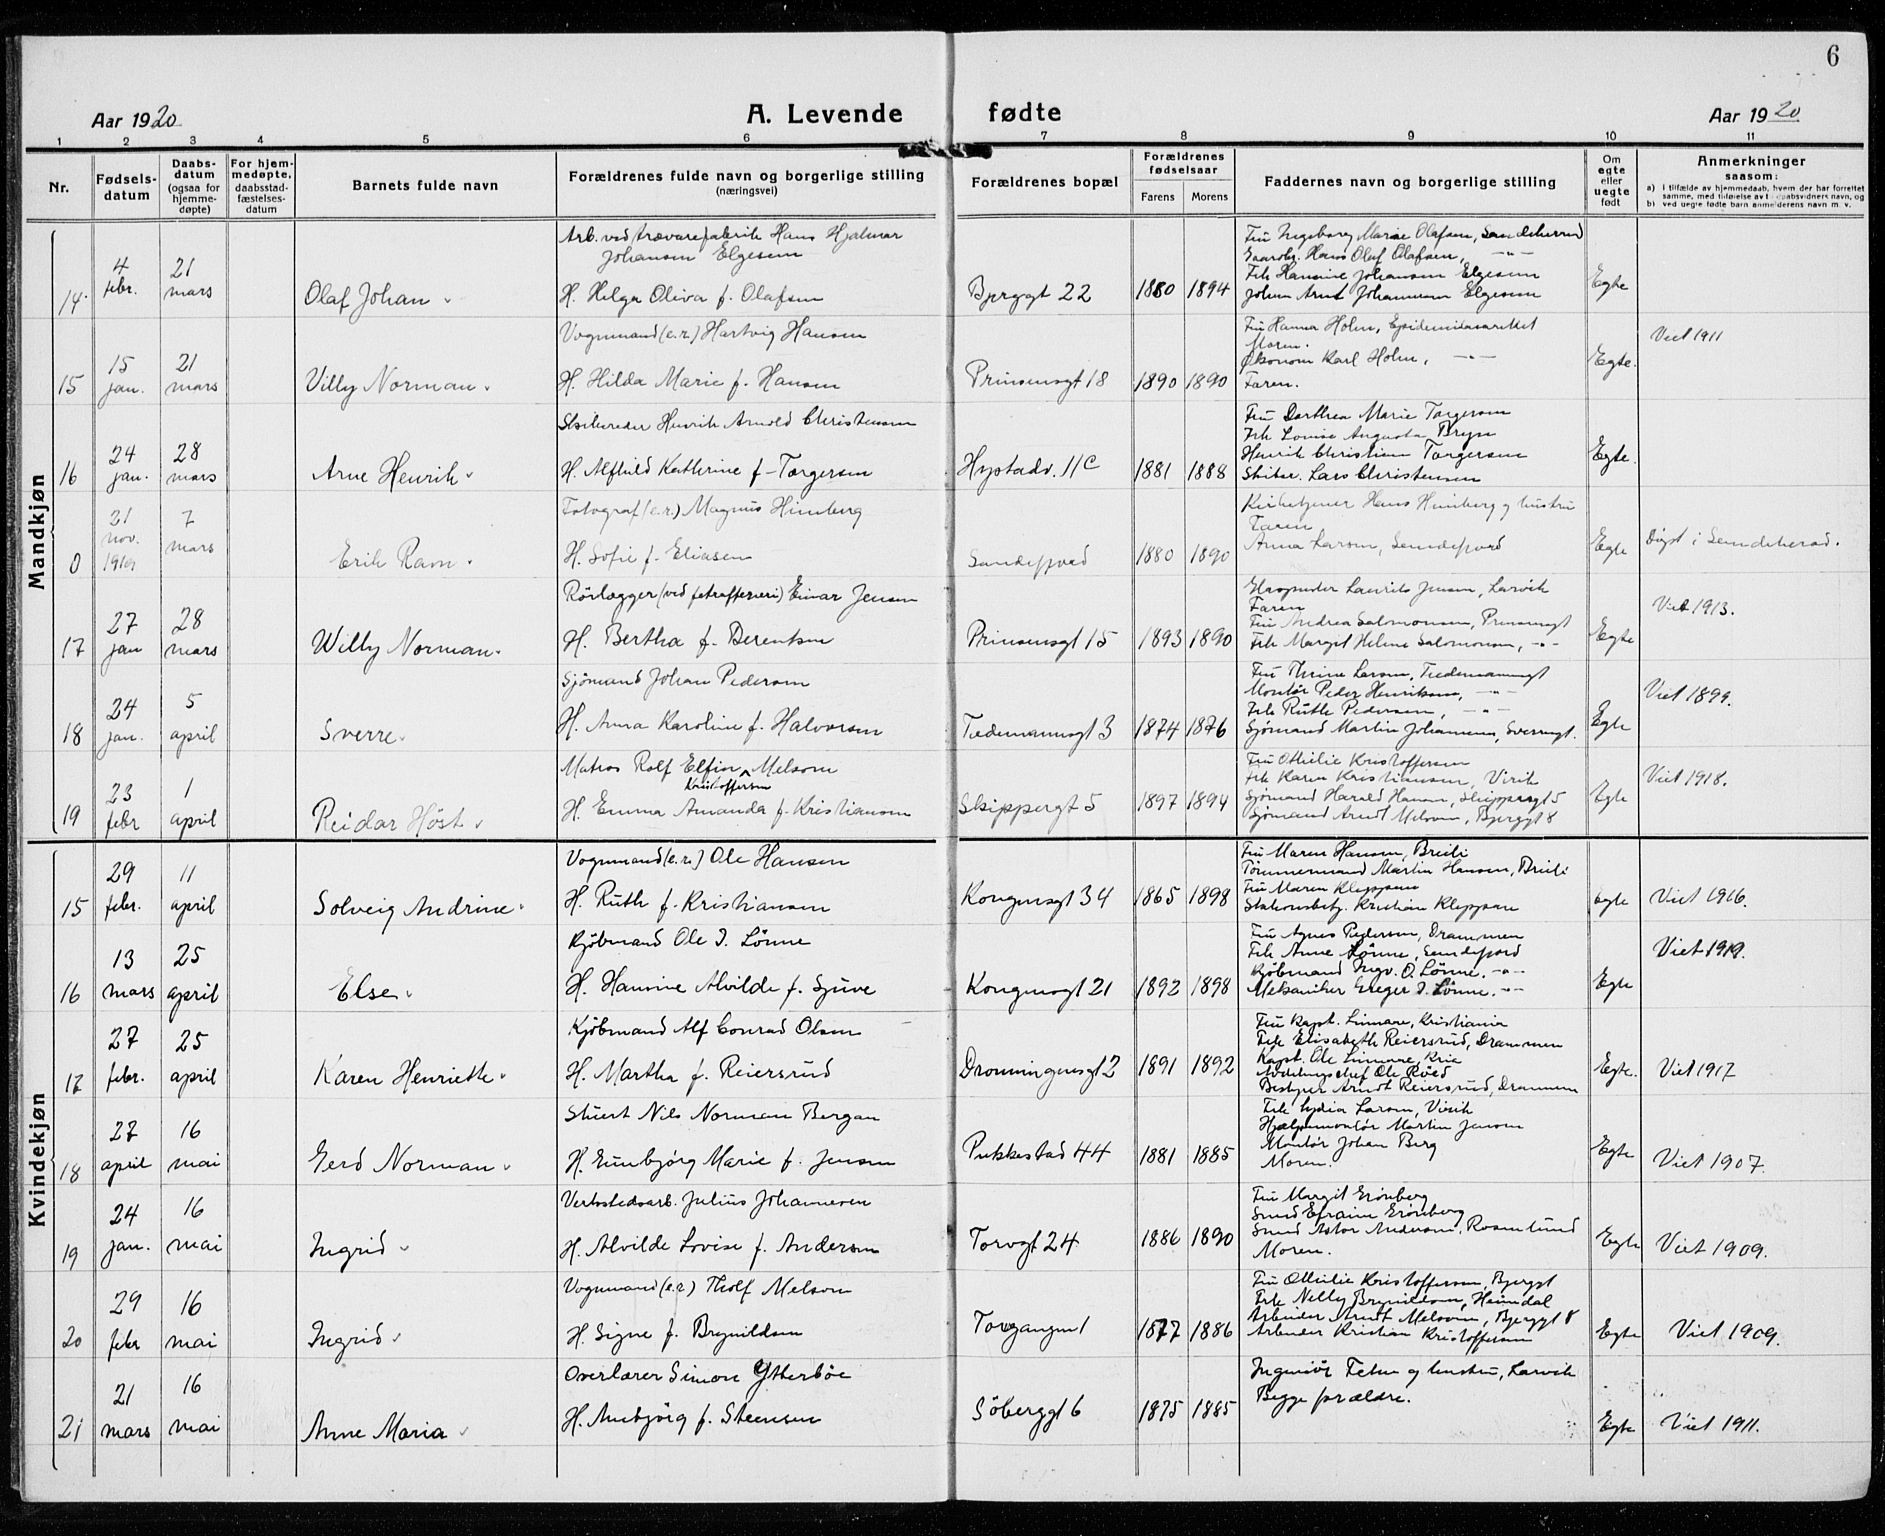 6
Aar 1920
A. Levende fødte
Aar 1920
1 2 3 4 5 6 7 8 9 10 11
Nr.
Fødsels-
datum
Daabs-
datum
(ogsaa for
hjemme-
døpte)
For hjem-
medøpte,
daabsstad-
fæstelses-
datum
Barnets fulde navn
Forældrenes fulde navn og borgerlige stilling
(næringsvei)
Forældrenes bopæl
Forældrenes
fødselsaar
Farens Morens
Faddernes navn og borgerlige stilling
Om
egte
eller
uegte
født
Anmerkninger
saasom:
a) i tilfælde av hjemmedaab, hvem der har forrettet
samme, med tilføielse av daabsvidners navn, og
b) ved uegte fødte barn anmelderens navn m. v.
Mandkjøn
14. 4 febr. 21 mars Olaf Johan
Arb. ved trævarefabrik Hans Hjalmar
Johansen Elgesem
H. Helga Oliva f. Olafsen
Bjerggt 22 1880 1894
Fru Ingeborg Marie Olafsen, Sandeherred
Gaardbr. Hans Olaf Olafsen, -"-
Frk Hansine Johansen Elgesem
Johan Arnt Johannesen Elgesem
Egte
15 15 jan. 21 mars Villy Norman
Vognmand (e.r.) Hartvig Hansen
H. Hilda Marie f. Hansen
Prinsensgt 18 1890 1890
Fru Hanna Holm, Epidemilasarettet
Moren.
Økonom Karl Holm, -"-
Faren.
Egte.
Viet 1911
16 24 jan. 28 mars Arne Henrik
Skibsreder Henrik Arnold Christensen
H. Alfhild Kathrine f. Torgersen
Hystadv. 11C 1881 1888
Fru Dorthea Marie Torgersen
Frk Louise Augusta Bryn
Henrik Christian Torgersen
Skibsr. Lars Christensen
Egte.
0 21 nov. 1919 7 mars Erik Ravn
Fotograf (e.r.) Magnus Himberg
H. Sofie f. Eliasen
Sandefjord 1880 1890
Kirketjener Hans Himberg og hustru
Faren
Anna Larsen, Sandefjord
Egte
Døpt i Sandeherad.
17 27 jan 28 mars Willy Norman
Rørlægger (ved fetraffineri) Einar Jensen
H. Bertha f. Berentsen
Prinsensgt 15 1893 1890
Laurits Jensen, Larvik
Faren
Fru Andrea Salomonsen, Prinsensgt
Frk Margit Helene Salomonsen, -"-
Egte
Viet 1913.
18 24 jan. 5 april Sverre
Sjømand Johan Pedersen
H. Anna Karoline f. Halvorsen
Tiedemannsgt 3 1874 1876
Fru Thrine Larsen, Tiedemannsgt
Montør Peder Henriksen, -"-
Frk Ruth Pedersen, -"-
Sjømand Martin Johannesen, Sverresgt.
Egte
Viet 1899.
19 23 febr 1 april Reidar Høst
Matros Rolf Elfin Melsom
Kristoffersen
H. Emma Amanda f. Kristiansen
Skippergt 5 1897 1894
Fru Othilie Kristoffersen
Frk Karen Kristiansen, Virik
Sjømand Harald Hansen, Skippergt 5
Sjømand Arndt Melsom, Bjerggt 8
Egte
Viet 1918.
Kvindekjøn
15 29 febr. 11 april Solveig Andrine
Vognmand (e.r.) Ole Hansen
H. Ruth f. Kristiansen
Kongensgt 34 1865 1898
Fru Maren Hansen, Breili
Tømmermand Martin Hansen, Breili
Fru Maren Kleppan
Stationsbetj. Kristian Kleppan
Egte
Viet 1916.
16 13 mars 25 april Else
Kjøbmand Ole I. Lønne
H. Hansine Alvilde f. Sjuve
Kongensgt 21 1892 1898
Fru Agnes Pedersen, Drammen
Frk Anne Lønne, Sandefjord
Kjøbmand Ingv. O. Lønne, -"-
Mekaniker I. Lønne, -"-
Egte
Viet 1919.
17 27 febr. 25 april Karen Henriette
Kjøbmand Alf Conrad Olsen
H. Martha f. Reiersrud
Dronningensgt 2 1891 1892
Fru Kapt. Linnaae, Kristiania
Frk Elisabeth Reiersrud, Drammen
Kapt. Ole Linnaae, Kria
Avdelingschef Ole Røed
Bestyrer Arndt Reiersrud, Drammen
Egte.
Viet 1917
18 27 april 16 mai Gerd Norman
Stuert Nils Norman Bergan
H. Gunbjørg Marie f. Jensen
Pukkestad 44 1881 1885
Frk Lydia Larsen, Virik
Hjælpemontør Martin Jensen
Montør Johan Berg
Moren.
Egte
Viet 1907.
19 24 jan. 16 mai Ingrid
Verkstedsarb. Julius Johannesen
H. Alvilde Lovise f. Andersen
Torvgt 24 1886 1890
Fru Margit Grønberg
Smed Efraim Grønberg
Smed Astor Andersen, Rosenlund
Moren.
Egte
Viet 1909.
20 29 febr 16 mai Ingrid
Vognmand (e.r) Tholf Melsom
H. Signe f. Brynildsen
Torgangen 1 1877 1886
Fru Othilie Kristoffersen, Bjerggt
Frk Nelly Brynildsen, Heimdal
Arbeider Arndt Melsom, Bjerggt 8
Arbeider Kristian Kristoffersen
Egte
Viet 1909.
21 21 mars 16 mai Anne Maria
Overlærer Simon Ytterbøe
H. Anbjørg f. Steensen
Søberggt 6 1875 1885
Ingeniør og hustru, Larvik
Begge forældre.
Egte
Viet 1911.